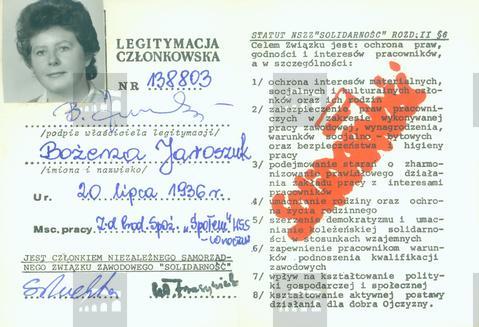 LEGITYMACJA
CZŁONKOWSKA
NR 138803
/podpis właściciela legitymacji/
Bożena Jaroszuk
/imiona i nazwisko/
Ur. 20 lipca 1936 r.
Msc. pracy. Z-d Prod. Spoż. "Społem" WSS
JEST CZŁONKIEM NIEZALEŻNEGO SAMORZĄD-
NEGO ZWIĄZKU ZAWODOWEGO "SOLIDARNOŚĆ"
STATUT NSZZ "SOLIDARNOŚĆ" ROZD:II §6
Celem Związku jest: ochrona praw,
godności i interesów pracowników,
a w szczególności:
1/ ochrona interesów materialnych,
socjalnych i kulturalnych człon-
ków oraz ich rodzin
2/ zabezpieczenie praw pracowni-
czych w zakresie wykonywanej
pracy zawodowej, wynagrodzenia,
warunków socjalno - bytowych
oraz bezpieczeństwa i higieny
pracy
3/ podejmowanie starań o zharmo-
nizowanie prawidłowego działa-
nia zakładu pracy z interesami
pracowników
4/ umacnianie rodziny oraz ochro-
na życia rodzinnego
5/ szerzenie demokratyzmu i umac-
nianie koleżeńskiej solidarnoś-
ci w stosunkach wzajemnych
6/ zapewnienie pracownikom warun-
ków podnoszenia kwalifikacji
zawodowych
7/ wpływ na kształtowanie polity-
ki gospodarczej i społecznej
8/ kształtowanie aktywnej postawy
działania dla dobra Ojczyzny.
Solidarność